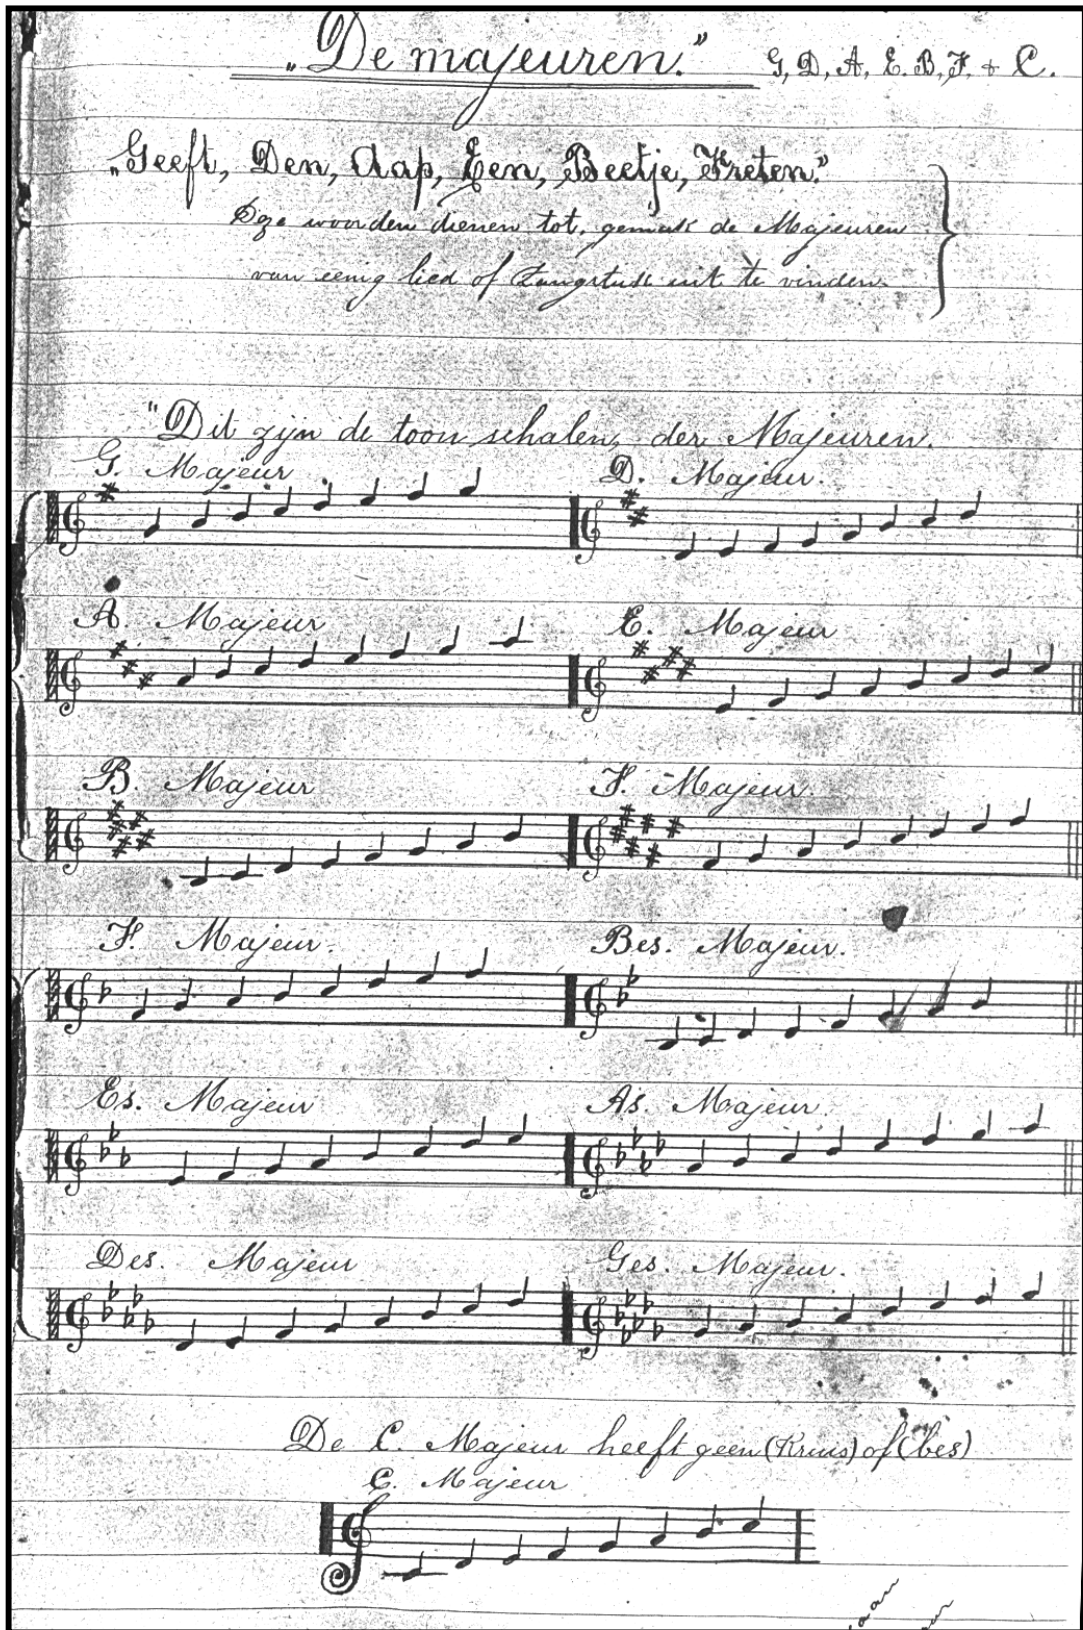 „De majeuren." G, D, A, E. B, F, + C.
„Geeft, Den, Aap, Een, Beetje, Freten."
Deze woorden dienen tot, gemak de Majeuren
van eenig lied of Zangstuk uit te vinden.
"Dit zijn de toon schalen, der Majeuren.
G. Majeur D. Majeur.
A. Majeur E. Majeur
B. Majeur F. Majeur.
F. Majeur. Bes. Majeur.
Es. Majeur As. Majeur.
Des. Majeur Ges. Majeur.
De C. Majeur heeft geen (Kruis) of (bes)
C. Majeur